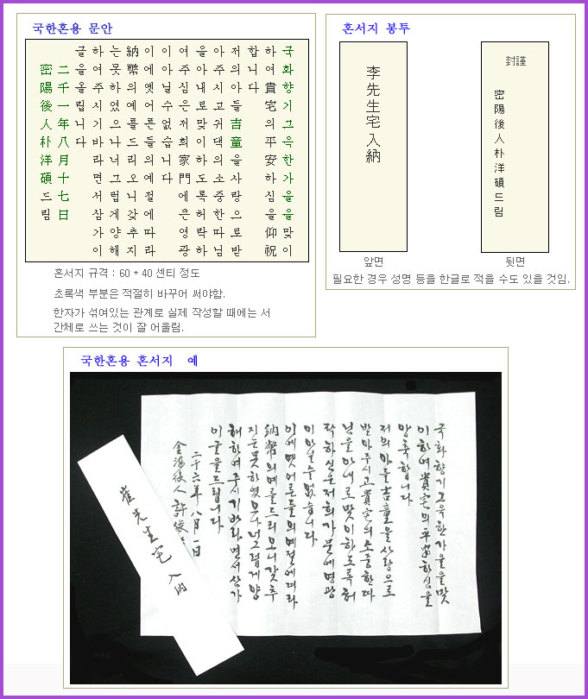 국한혼용 문안
국화향기 그윽한 가을을 맞이
하여 貴宅의 平安하심을 仰祝
합니다
저의 아들 吉童을 사랑으로 받
아주시고 귀댁의 소중한 따님
을 아내로 맞이하도록 허락하
여 주심은 저희 家門에 큰 영광
이 아닐 수 없습니다
이에 옛 어른들의 예절에 따라
納幣의 예를 드리오니 갖추지
는 못하였으나 너그럽게 양해
하여 주시기 바라면서 삼가 이
글을 올립니다
二千一年八月十七日
密陽後人朴洋碩드림
혼서지 규격 : 60 * 40 센티 정도
초록색 부분은 적절히 바꾸어 써야함.
한자가 섞여있는 관계로 실제 작성할 때에는 서
간체로 쓰는 것이 잘 어울림.
혼서지 봉투
李先生宅入納
앞면
封謹
密陽後人朴洋碩드림
뒷면
필요한 경우 성명 등을 한글로 적을 수도 있을 것임.
국한혼용 혼서지 예
국화향기 그윽한 가을을 맞
이하여 貴宅의 平安하심을
앙축합니다
저의 아들 吉童을 사랑으로
받아주시고 貴宅의 소중한 따
님을 아내로 맞이하도록 허
락하심은 저희 가문에 영광
이 아닐 수 없습니다
이에 옛어른들의 예절에 따라
納幣의 예를 드리오니 갖추
지는 못하였으나 너그럽게 양
해하여 주시기 바라면서 삼가
이글을 드립니다
二千六年 八月 一日
金海後人 許
崔先生宅 入納